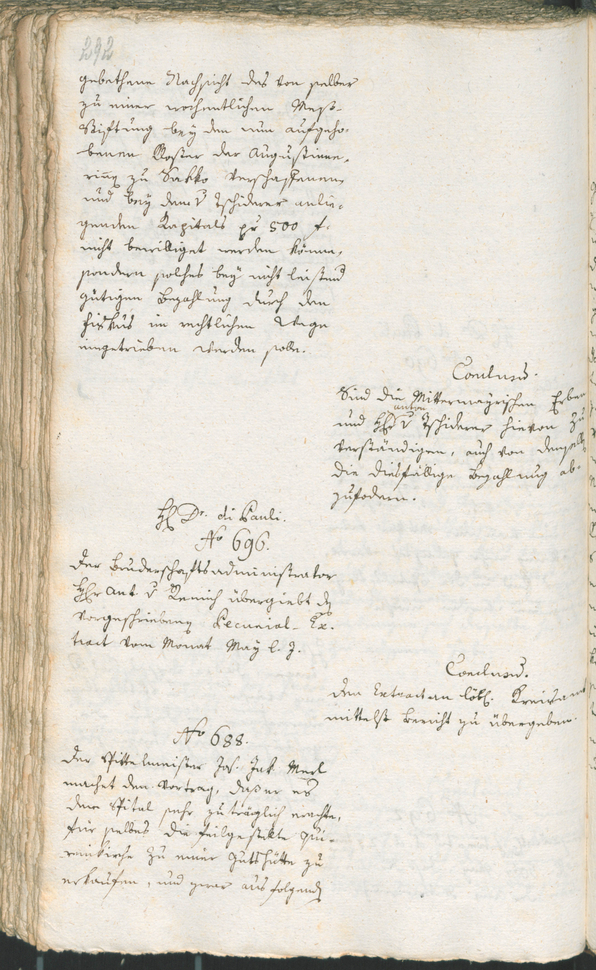 292
gebethene Nachsicht des von selber
zu einer wochentlichen Meß-
stiftung bey dem nun aufgeho-
benen Kloster der Augustine-
rinn zu Sakko verschaffenen,
und bey dem v Tschiderer anlie-
genden Kapitals pr 500 f.
nicht bewilliget werden könne,
sondern solches bey nicht leistend
gütigen Bezahlung durch den
Fiskus im rechtlichen Wege
eingetrieben werden solle.
Conclusum.
Sind die Mittermayrischen Erben
und v Tschiderer hievon zu
verständigen, auch von
die diesfällige Bezahlung ab-
zufodern.
H Dr. di Pauli.
No 696.
Der Bruderschaftsadministrator
Hr Ant v Remich übergiebt d
vorgeschriebenen Pecunial-Ex-
tract vom Monat May l. J.
Conclusum.
Den Extract an löbl. Kreisamt
mittelst Bericht zu übergeben.
No 688.
Der Spittelmeister Jos. Merl
machet den Vortrag, daß er es
dem Spital sehr zuträglich erachte,
für selbes die feilgestellte
zu einer Guttshütte zu
erkaufen, und zwar aus folgend